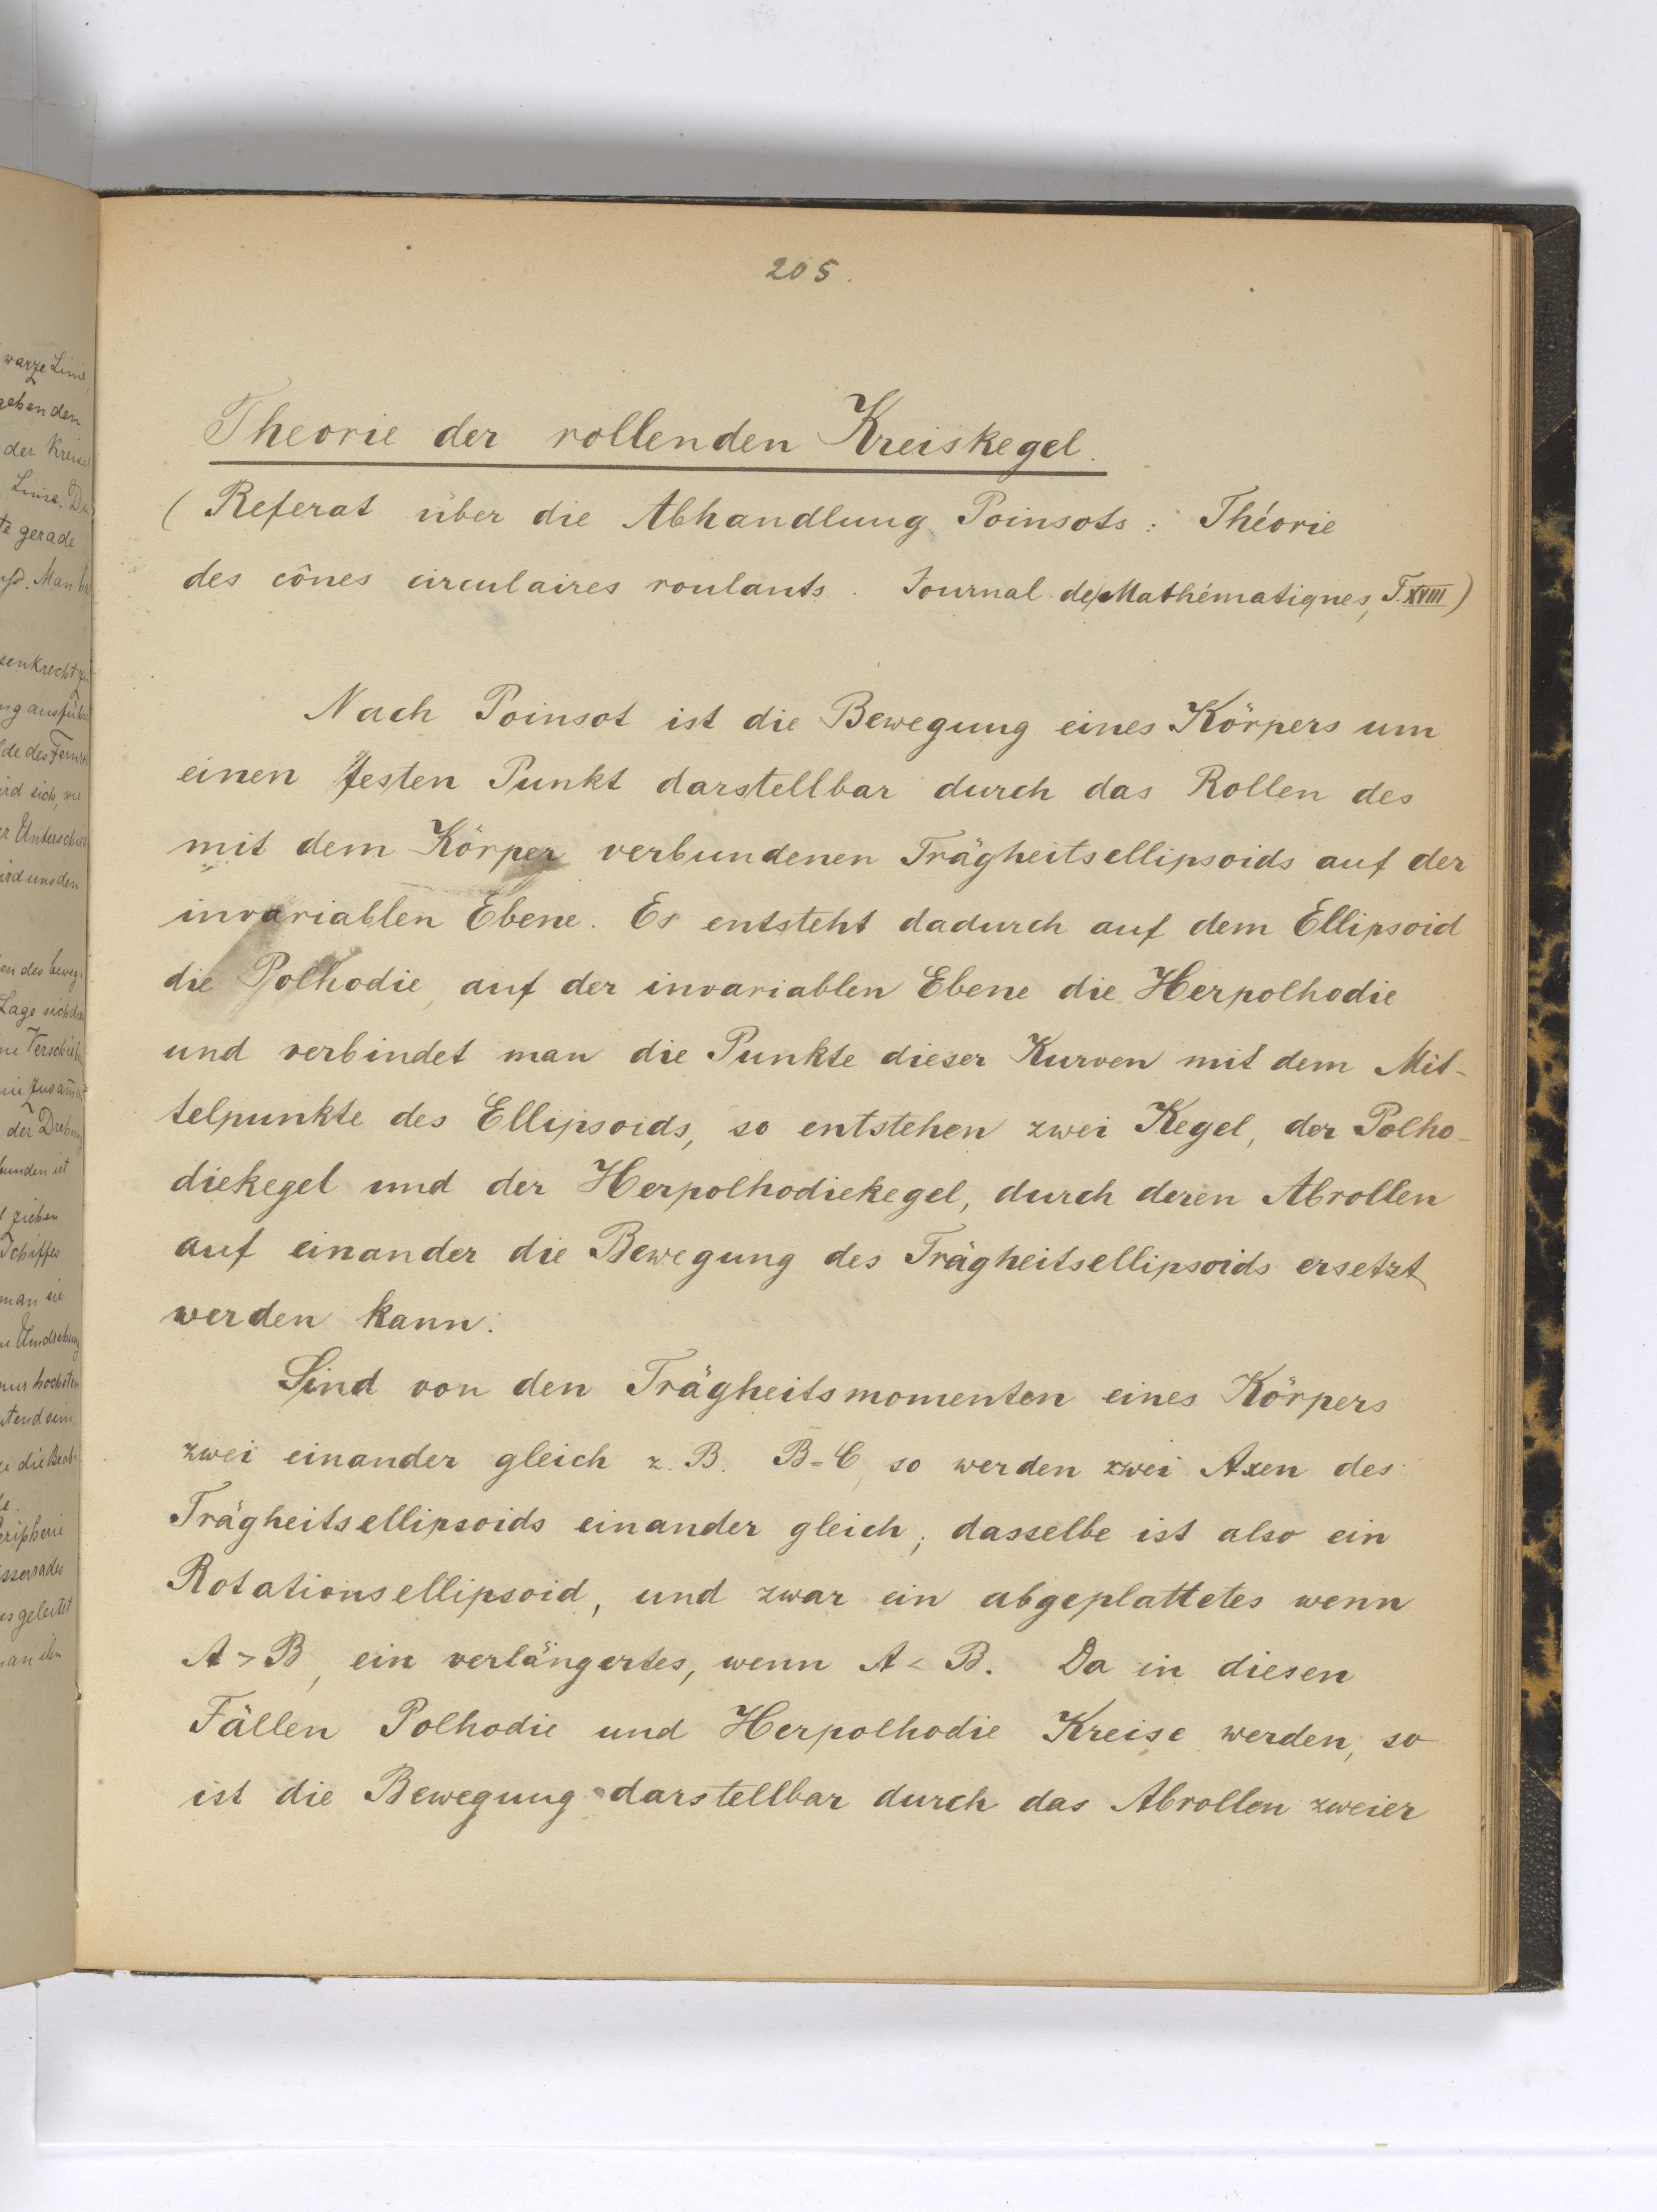 205.
Theorie der rollenden Kreiskegel.
(Referat über die Abhandlung Poinsots: Théorie
des cônes circulaires roulants. Journal de Mathématiques, T. XVIII)
Nach Poinsot ist die Bewegung eines Körpers um
einen festen Punkt darstellbar durch das Rollen des
mit dem Körper verbundenen Trägheitsellipsoids auf der
invariablen Ebene. Es entsteht dadurch auf dem Ellipsoid
die Polhodie, auf der invariablen Ebene die Herpolhodie
und verbindet man die Punkte dieser Kurven mit dem Mit-
telpunkte des Ellipsoids, so entstehen zwei Kegel, der Polho-
diekegel und der Herpolhodiekegel, durch deren Abrollen
auf einander die Bewegung des Trägheitsellipsoids ersetzt
werden kann.
Sind von den Trägheitsmomenten eines Körpers
zwei einander gleich z. B. B=C, so werden zwei Axen des
Trägheitsellipsoids einander gleich; dasselbe ist also ein
Rotationsellipsoid, und zwar ein abgeplattetes wenn
A > B, ein verlängertes, wenn A < B. Da in diesen
Fällen Polhodie und Herpolhodie Kreise werden, so
ist die Bewegung darstellbar durch das Abrollen zweier